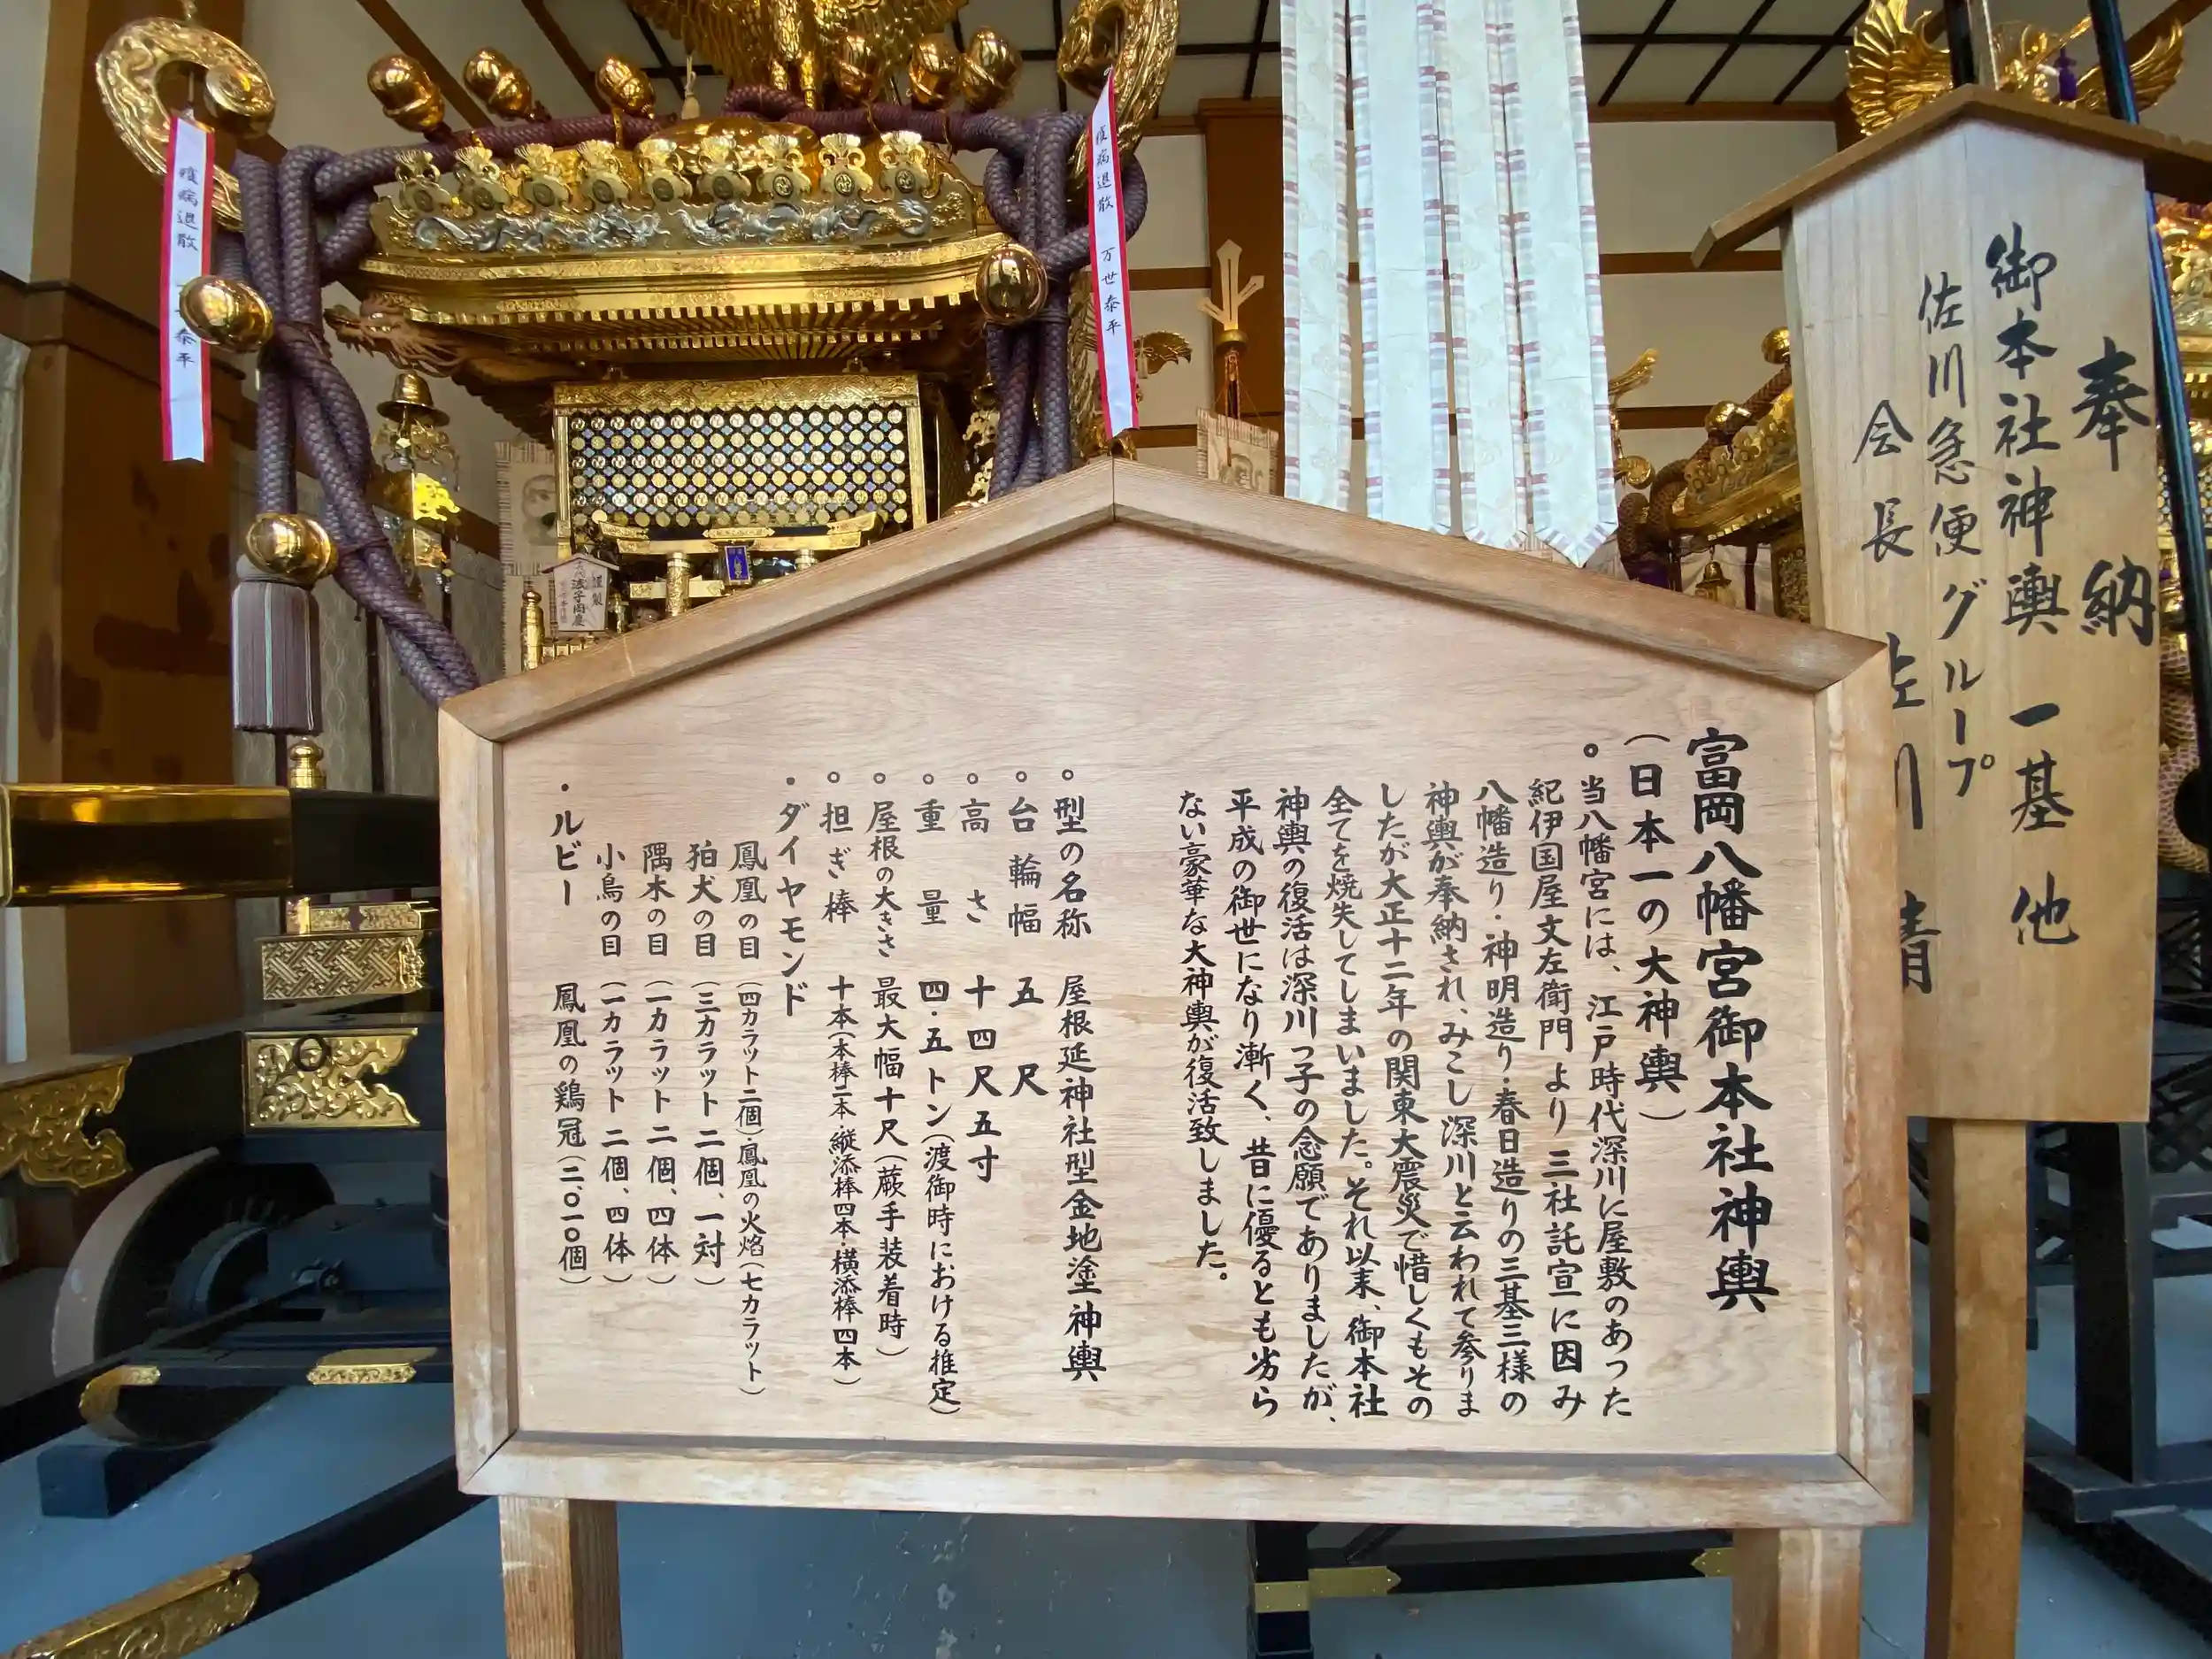 富岡八幡宮御本社神輿
(日本一の大神輿)
。当八幡宮には、江戸時代深川に屋敷のあった
紀伊国屋文左衛門より三社託宣に因み
八幡造り・神明造り・春日造りの三基三様の
神輿が奉納され、みこし深川と云われて参りま
したが大正十二年の関東大震災で惜しくもその
全てを焼失してしまいました。それ以来、御本社
神輿の復活は深川っ子の念願でありましたが、
平成の御世になり漸く、昔に優るとも劣ら
ない豪華な大神輿が復活致しました。
。型の名称 屋根延神社型金地塗神輿
。台輪幅 五尺
。高さ 十四尺五寸
。重量 四・五トン(渡御時における推定)
。屋根の大きさ 最大幅十尺(蕨手装着時)
。担ぎ棒 十本(本棒二本・縦添棒四本・横添棒四本)
・ダイヤモンド
鳳凰の目(四カラット二個)・鳳凰の火焔(七カラット)
狛犬の目(三カラット二個、一対)
隅木の目(一カラット二個、四体)
小鳥の目(一カラット二個、四体)
・ルビー 鳳凰の鶏冠(二、〇一〇個)
奉納
御本社神輿一基他
佐川急便グループ
会長 佐川 清
疫病退散 万世泰平
疫病退散 泰平
謹製